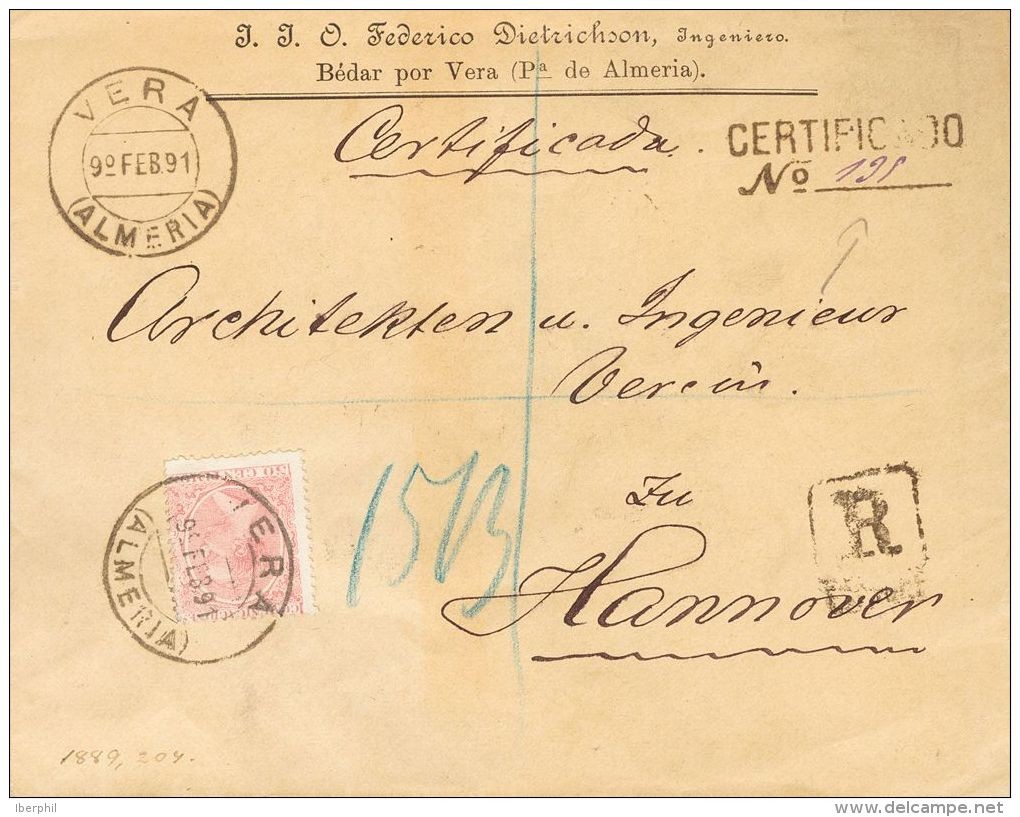 J. J. O. Federico Dietrichson, Ingeniero.
Bédar por Vera (Pª de Almeria).
VERA
9º FEB.91
(ALMERIA)
Certificada.
CERTIFICADO
Nº 195
Architekten u. Ingenieur
Verein.
zu
Hannover
R
1513
50 CEN
VERA
9º FEB.91
(ALMERIA)
1889, 204.
Iberphil
www.delcampe.net